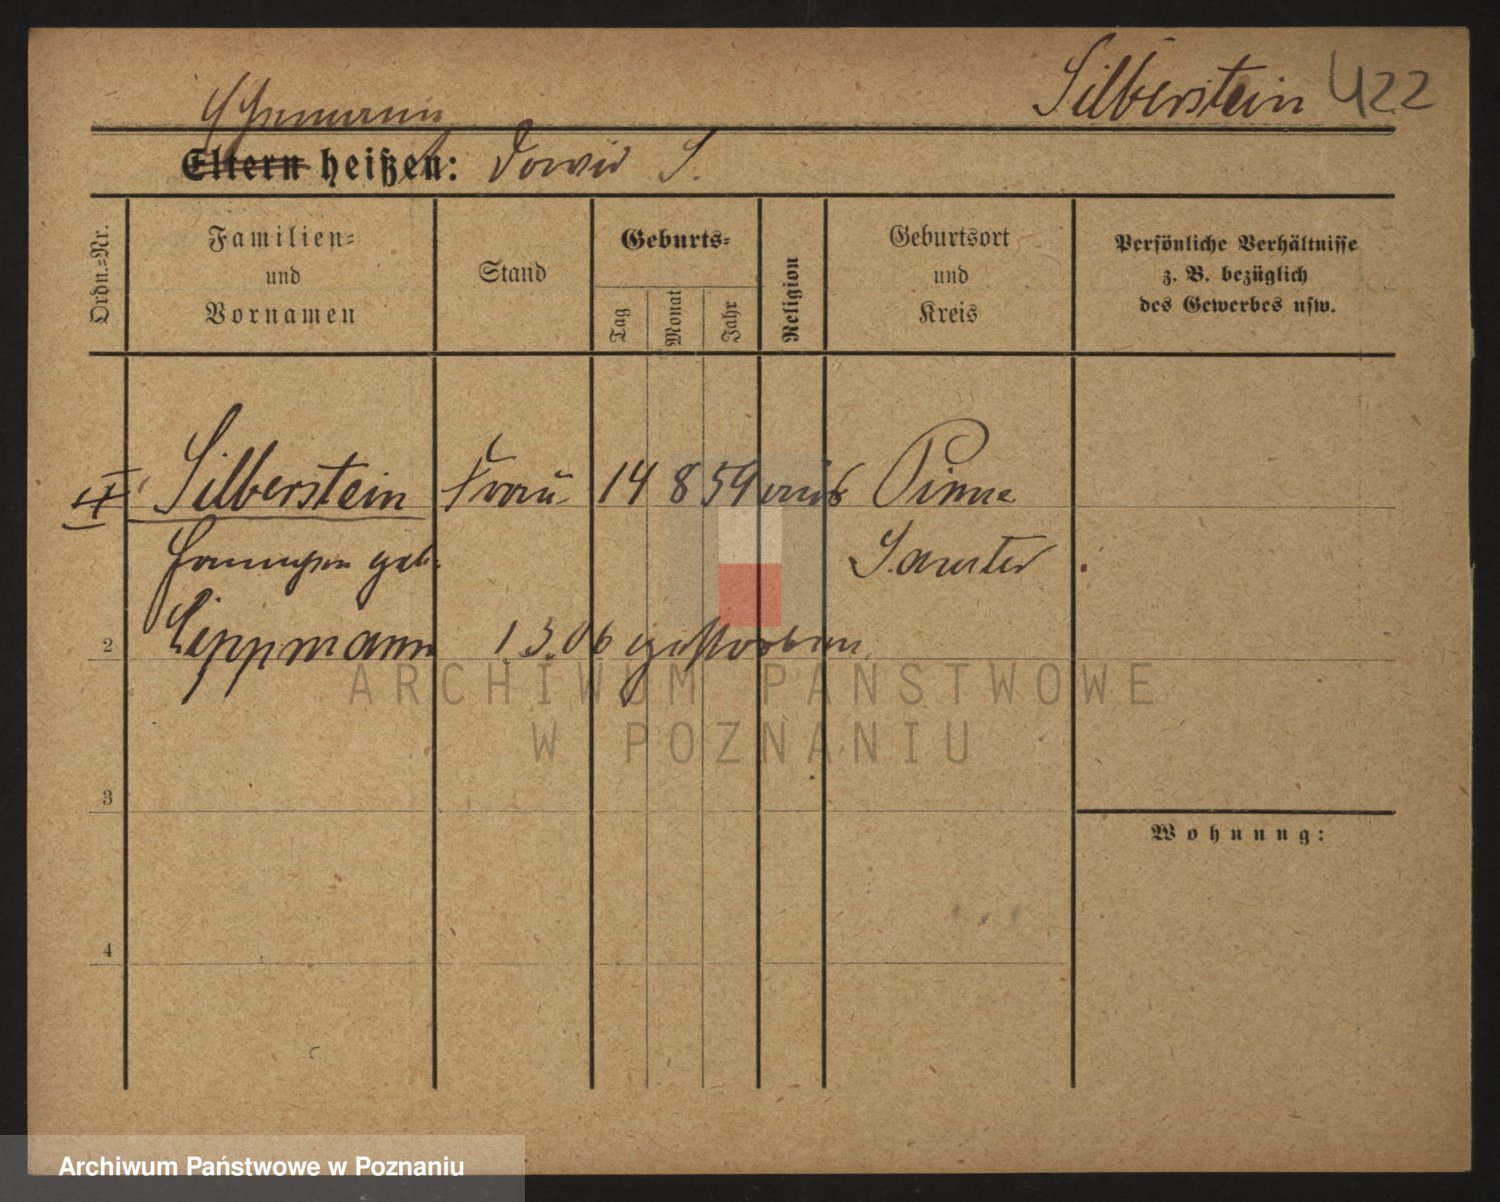 Silberstein 422
Ehemann
Eltern heißen: David S.
Ordn.=Nr.
Familien=
und
Vornamen
Stand
Geburts=
Tag
Monat
Jahr
Religion
Geburtsort
und
Kreis
Persönliche Verhältnisse
z. B. bezüglich
des Gewerbes usw.
Silberstein Frau 14 8 59 Pinne
geb. Samter
2 Lippmann 1 3.06 gestorben
ARCHIWUM PAŃSTWOWE
W POZNANIU
3
Wohnung:
4
Archiwum Państwowe w Poznaniu